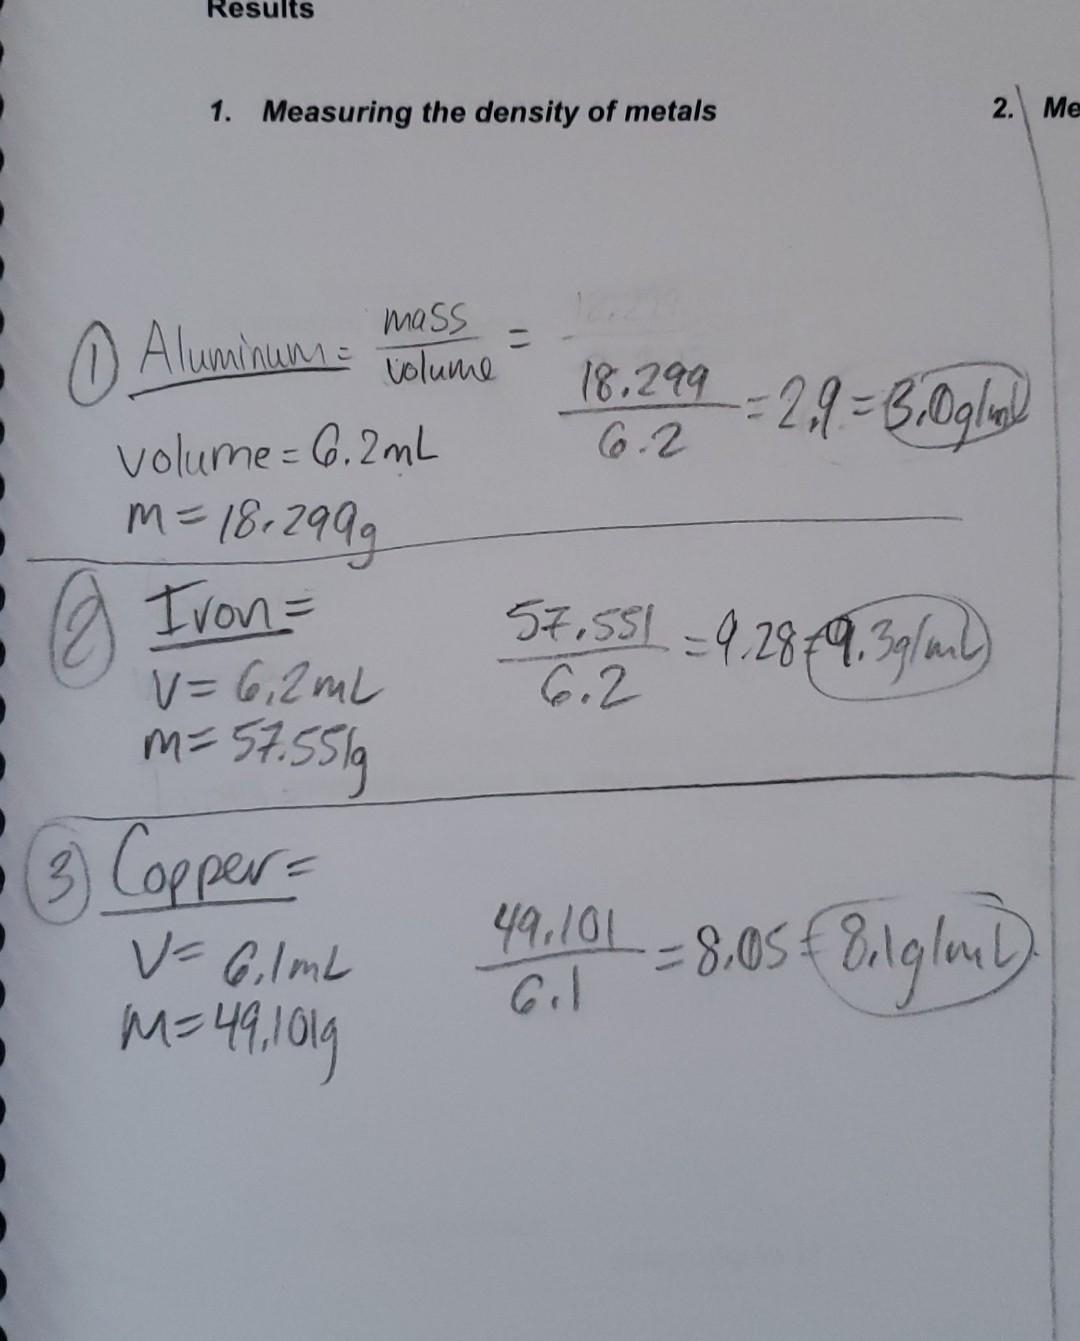 Results
1. Measuring the density of metals
2. Me
① Aluminum = mass/volume =
18.299/6.2 = 2.9 = 3.0g/mL
volume = 6.2mL
m = 18.299g
② Iron =
57.551/6.2 = 9.28 = 9.3g/mL
V = 6.2mL
m = 57.551g
③ Copper =
49.101/6.1 = 8.05 = 8.1g/mL
V = 6.1mL
M = 49.101g